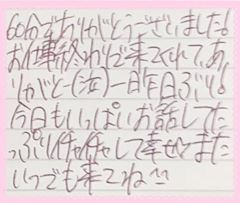 60分でありがとうございました!
お仕事終わりで来てくれてあ
りがとー(泣)一昨日ぶり!
今日もいっぱいお話してた
っぷりイチャイチャして幸せました
いつでも来てね!!